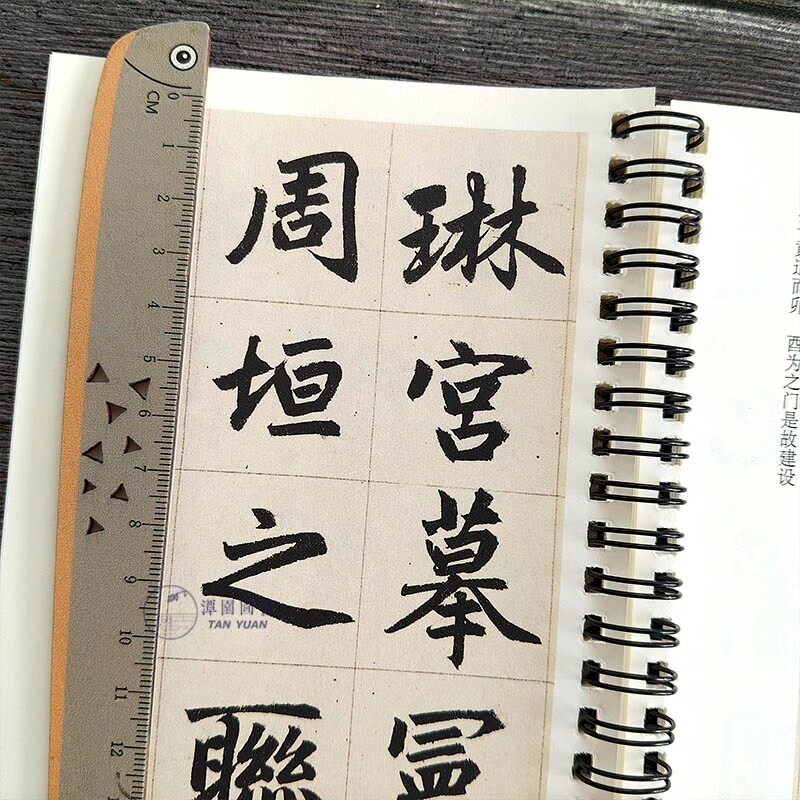 道而卯
酉为之门是故建设
琳宮摹
周垣之聯
CM
0
1
2
3
4
5
6
7
8
9
10
11
12
潭園圖
TAN YUAN